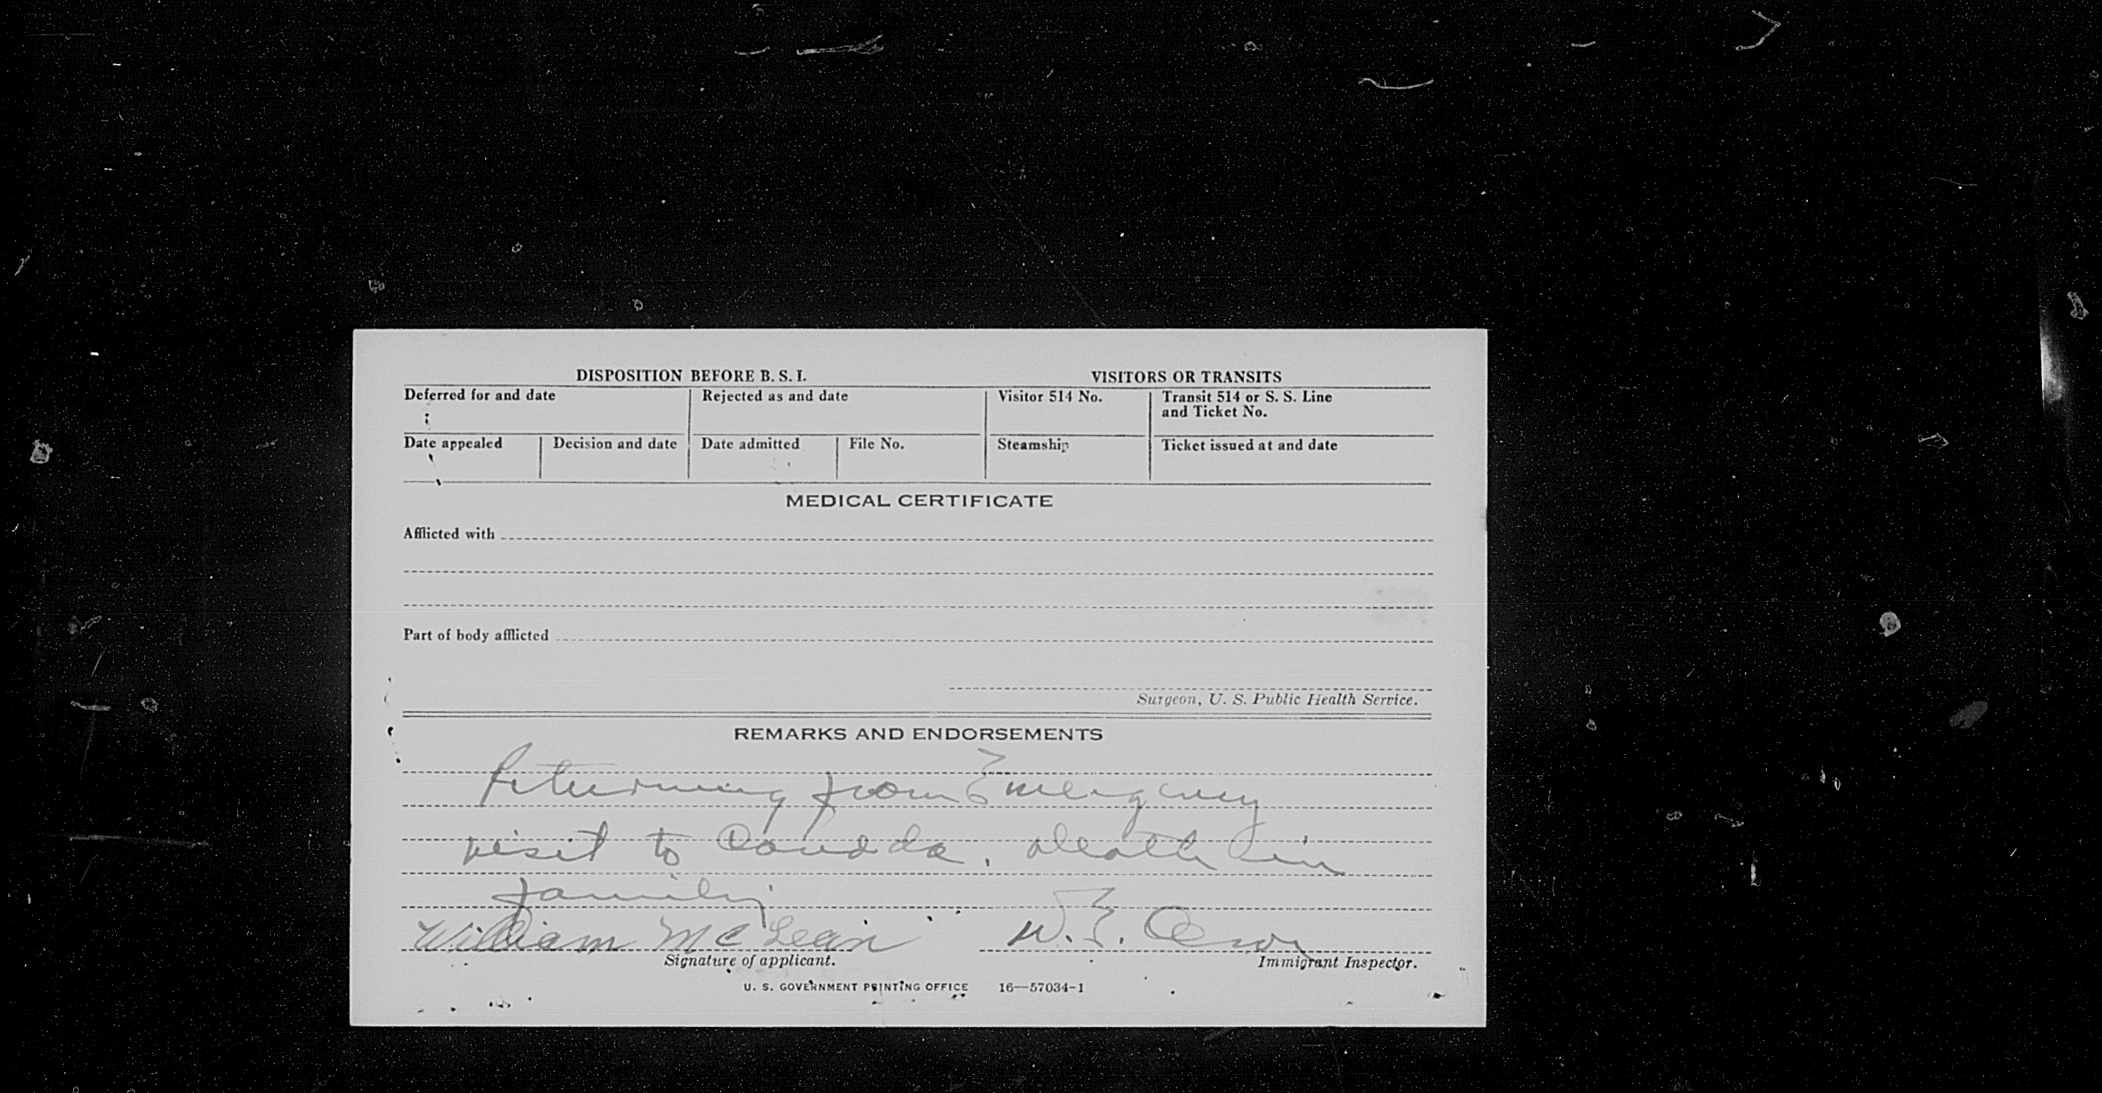 DISPOSITION BEFORE B. S. I.
VISITORS OR TRANSITS
Deferred for and date
Rejected as and date
Visitor 514 No.
Transit 514 or S. S. Line
and Ticket No.
Date appealed
Decision and date
Date admitted
File No.
Steamship
Ticket issued at and date
MEDICAL CERTIFICATE
Afflicted with
Part of body afflicted
Surgeon, U. S. Public Health Service.
REMARKS AND ENDORSEMENTS
Returning from Emergency
visit to Canada. Death in
family
William McLean
W. E.
Signature of applicant.
Immigrant Inspector.
U. S. GOVERNMENT PRINTING OFFICE 16—57034-1